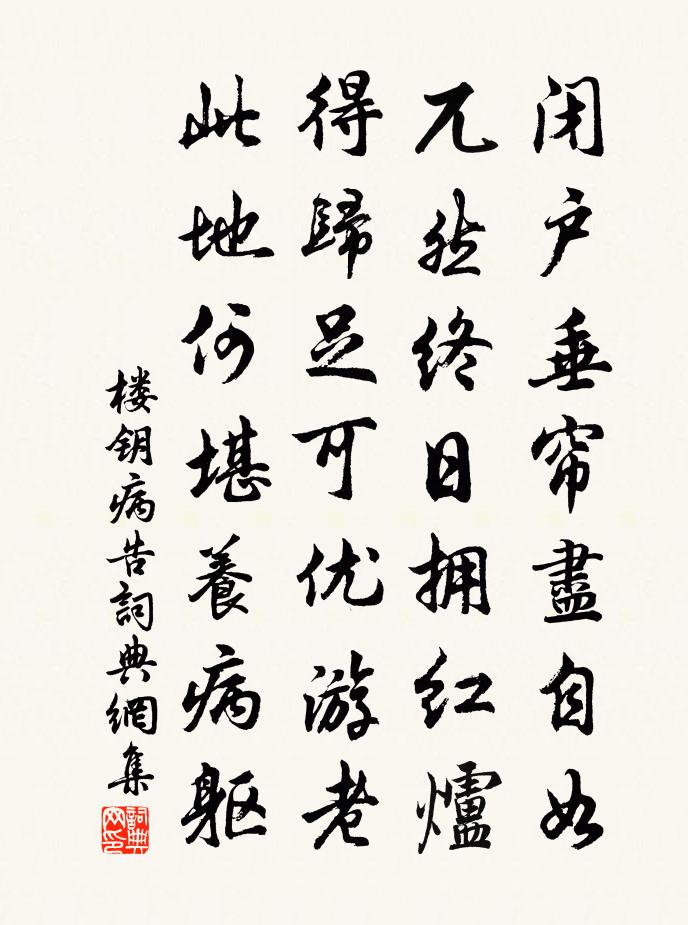 闭户垂帘盡自如
兀然终日拥红爐
得歸足可优游老
此地何堪養病躯
楼钥病告詞典網集
詞典网印